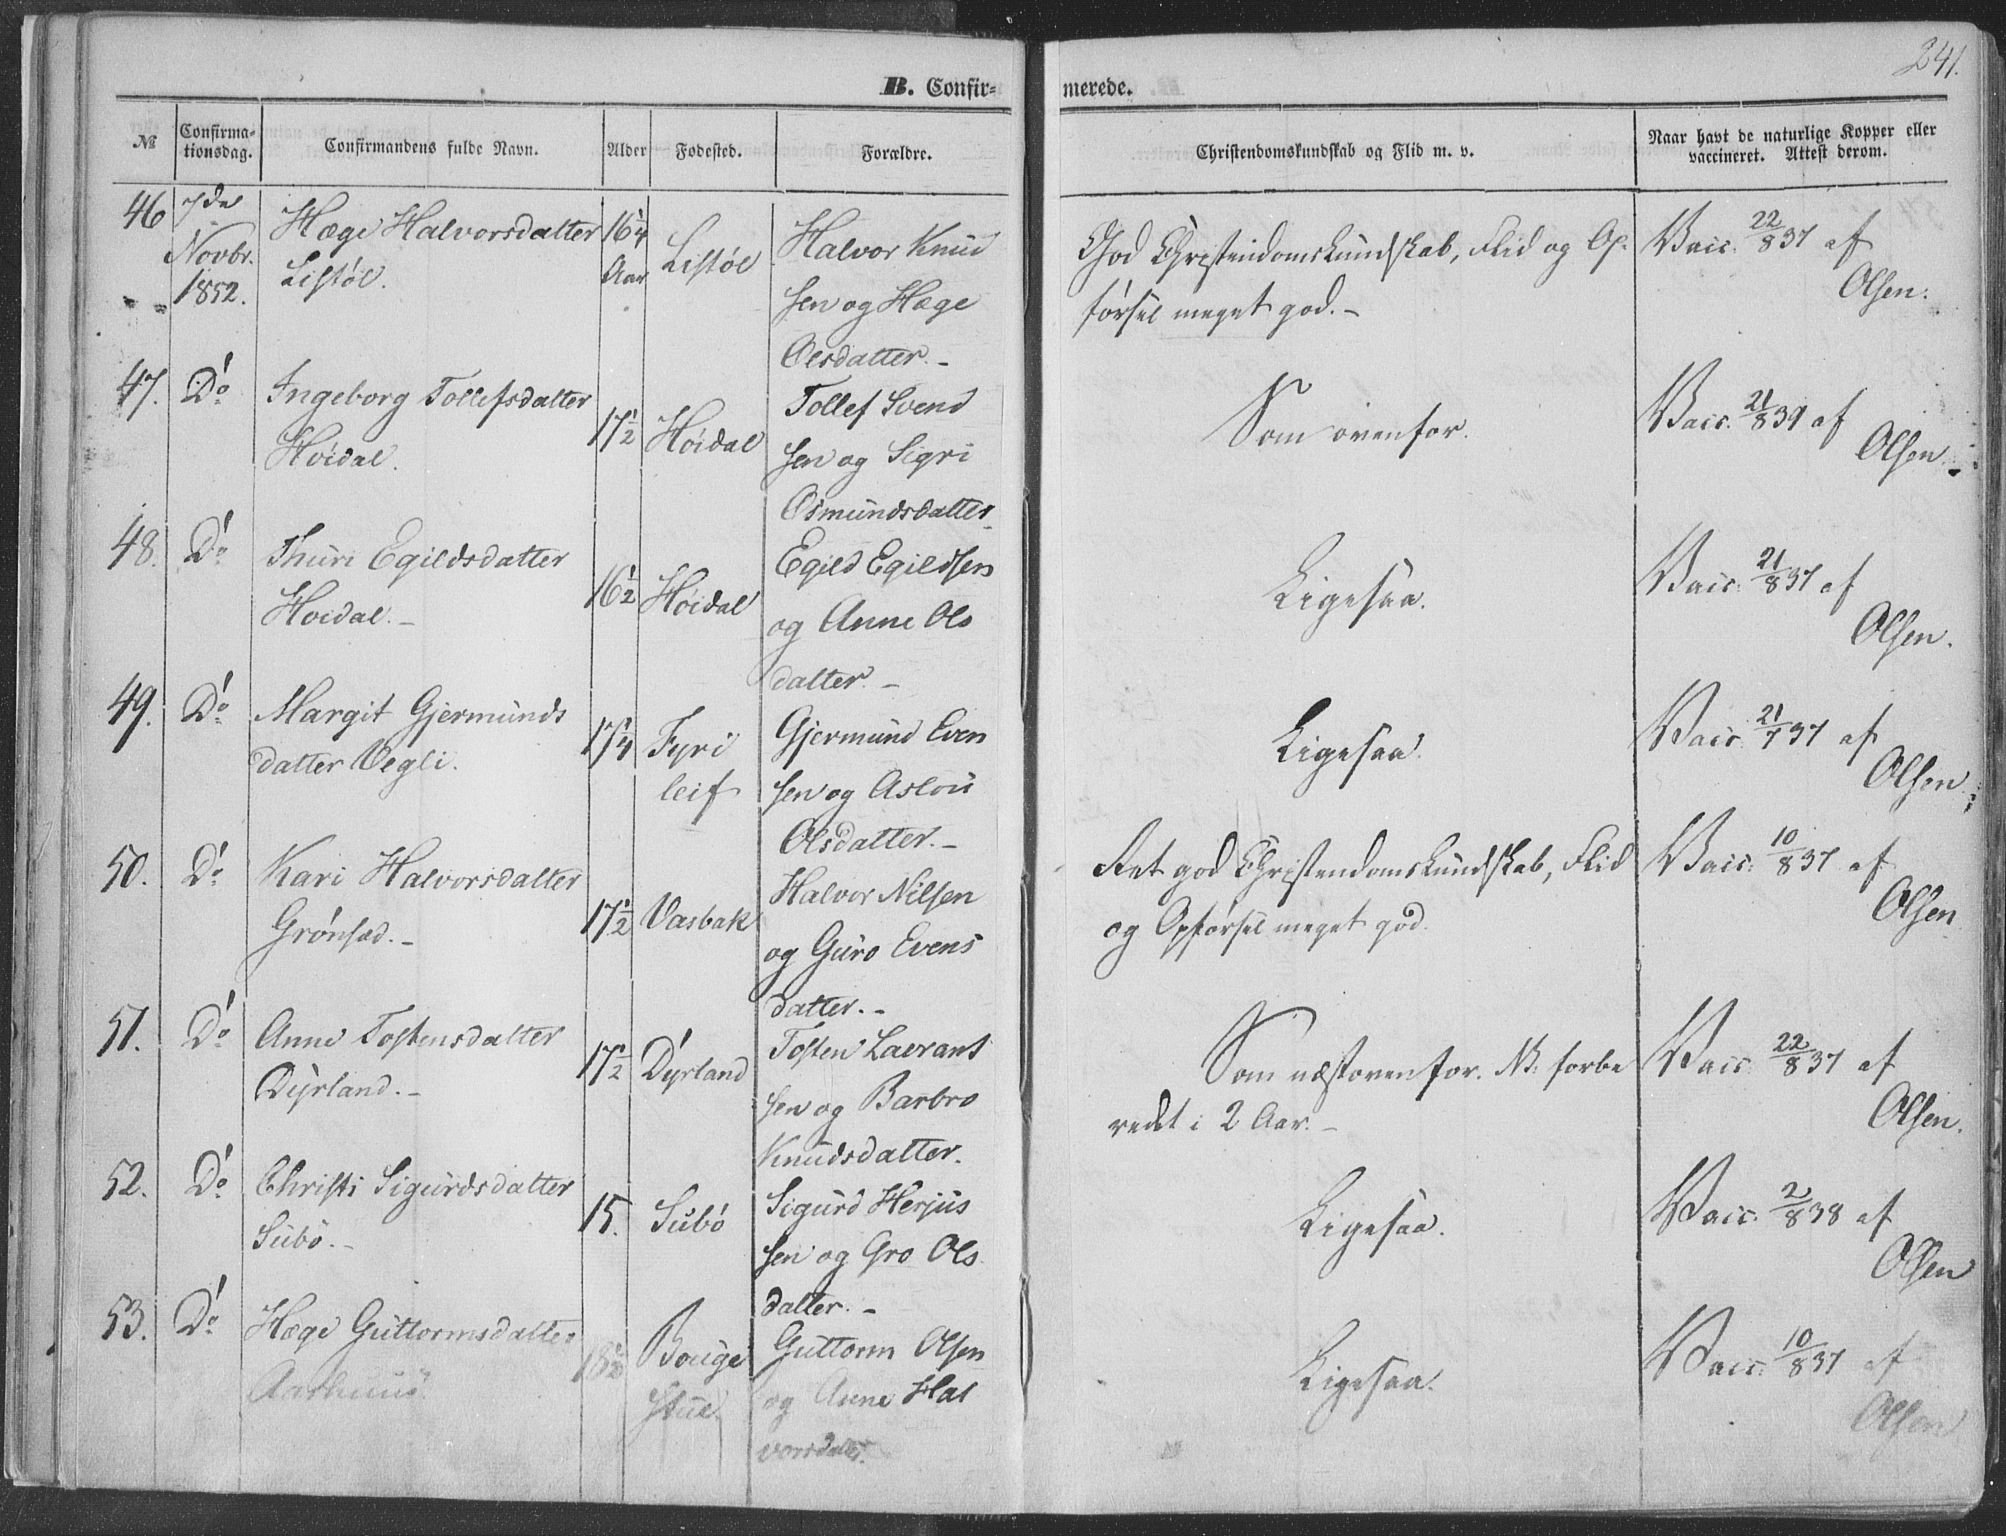 241.
B. Confirmerede.
№ Confirmationsdag. Confirmandens fulde Navn. Alder Fodested. Forældre. Christendomskundskab og Flid m. v. Naar havt de naturlige Kopper eller vaccineret. Attest derom.
46 7de Novbr. 1852. Hæge Halvorsdatter Listøl. 16 1/4 Aar Listøl Halvor Knud
sen og Hæge
Olsdatter. –
God Christendomskundskab, Flid og Op-
førsel meget god. –
Vacc. 22/8 37 af
Olsen.
47. Do Ingeborg Tollefsdatter
Høidal.
17 1/2 Høidal
Tollef Svend
sen og Sigri
Osmundsdatter
Som ovenfor.
Vacc. 21/8 39 af
Olsen
48. Do Thuri Egildsdatter
Høidal. –
16 1/2 Høidal
Egild Egildsen
og Anne Ols
datter –
Ligesaa.
Vacc. 21/8 37 af
Olsen.
49. Do Margit Gjermunds
datter Vegli.
17 1/4 Fyri
leif
Gjermund Even
sen og Aslou
Olsdatter. –
Ligesaa.
Vacc. 21/7 37 af
Olsen
50. Do Kari Halvorsdatter
Grónsæd. –
17 1/2 Vasbak
Halvor Nilsen
og Guro Evens
datter. –
Ret god Christendomskundskab, Flid
og Opførsel meget god.
Vacc. 10/8 37 af
Olsen
51. Do Anne Tostensdatter
Dyrland. –
17 1/2 Dyrland
Tosten Lavrants
sen og Barbro
Knudsdatter.
Som næstovenfor. NB. forbe
redt i 2 Aar. –
Vacc. 22/8 37 af
Olsen.
52. Do Christi Sigurdsdatter
Subø. –
15. Subø
Sigurd Herjus
sen og Gro Ols
datter. –
Ligesaa.
Vacc. 2/8 38 af
Olsen
53. Do Hæge Guttormsdatter
Aarhuus
18 1/2 Bouge
stue.
Guttorm Olsen
og Anne Hal
vorsdatter.
Ligesaa.
Vacc. 10/8 37 af
Olsen